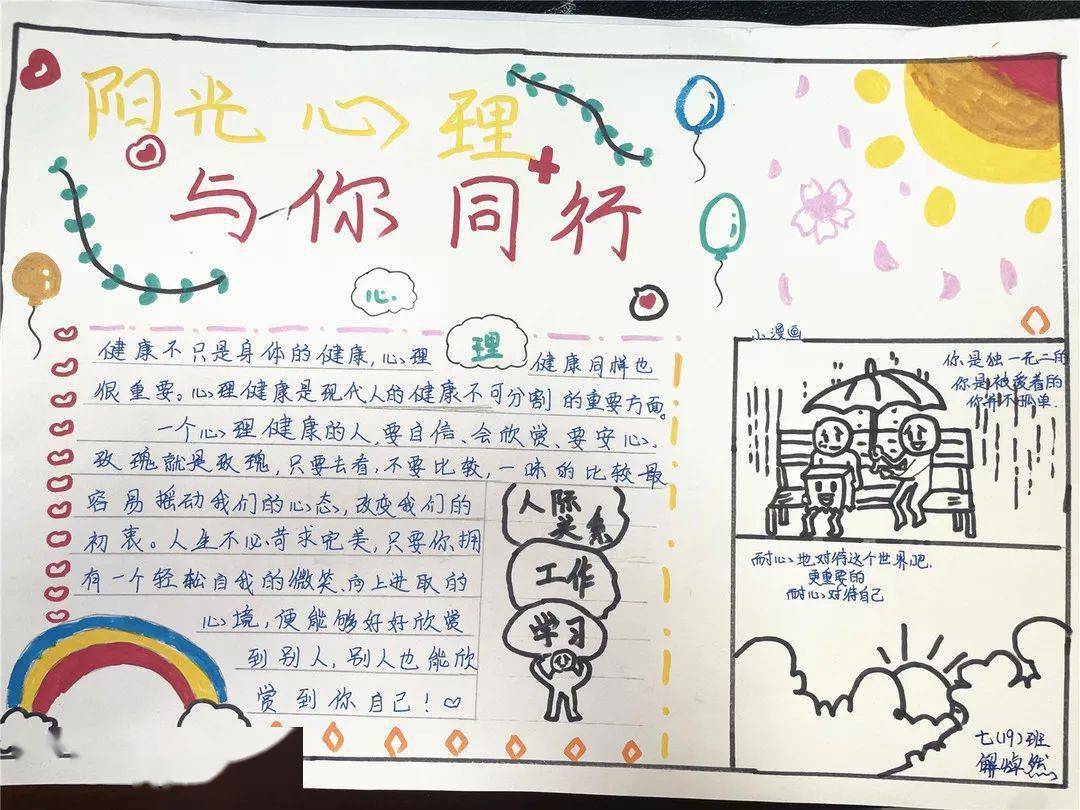 阳光心理
与你同行
心
理
健康不只是身体的健康,心理健康同样也
很重要。心理健康是现代人的健康不可分割的重要方面。
一个心理健康的人,要自信、会欣赏、要安心。
玫瑰就是玫瑰,只要去看,不要比较,一味的比较最
容易摇动我们的心态,改变我们的
初衷。人生不必苛求完美,只要你拥
有一个轻松自我的微笑、向上进取的
心境,便能够好好欣赏
到别人,别人也能欣
赏到你自己!
人际
关系
工作
学习
小漫画
你是独一无二的
你是被爱着的
你并不孤单.
耐心地对待这个世界吧.
更重要的
耐心对待自己
七(19)班